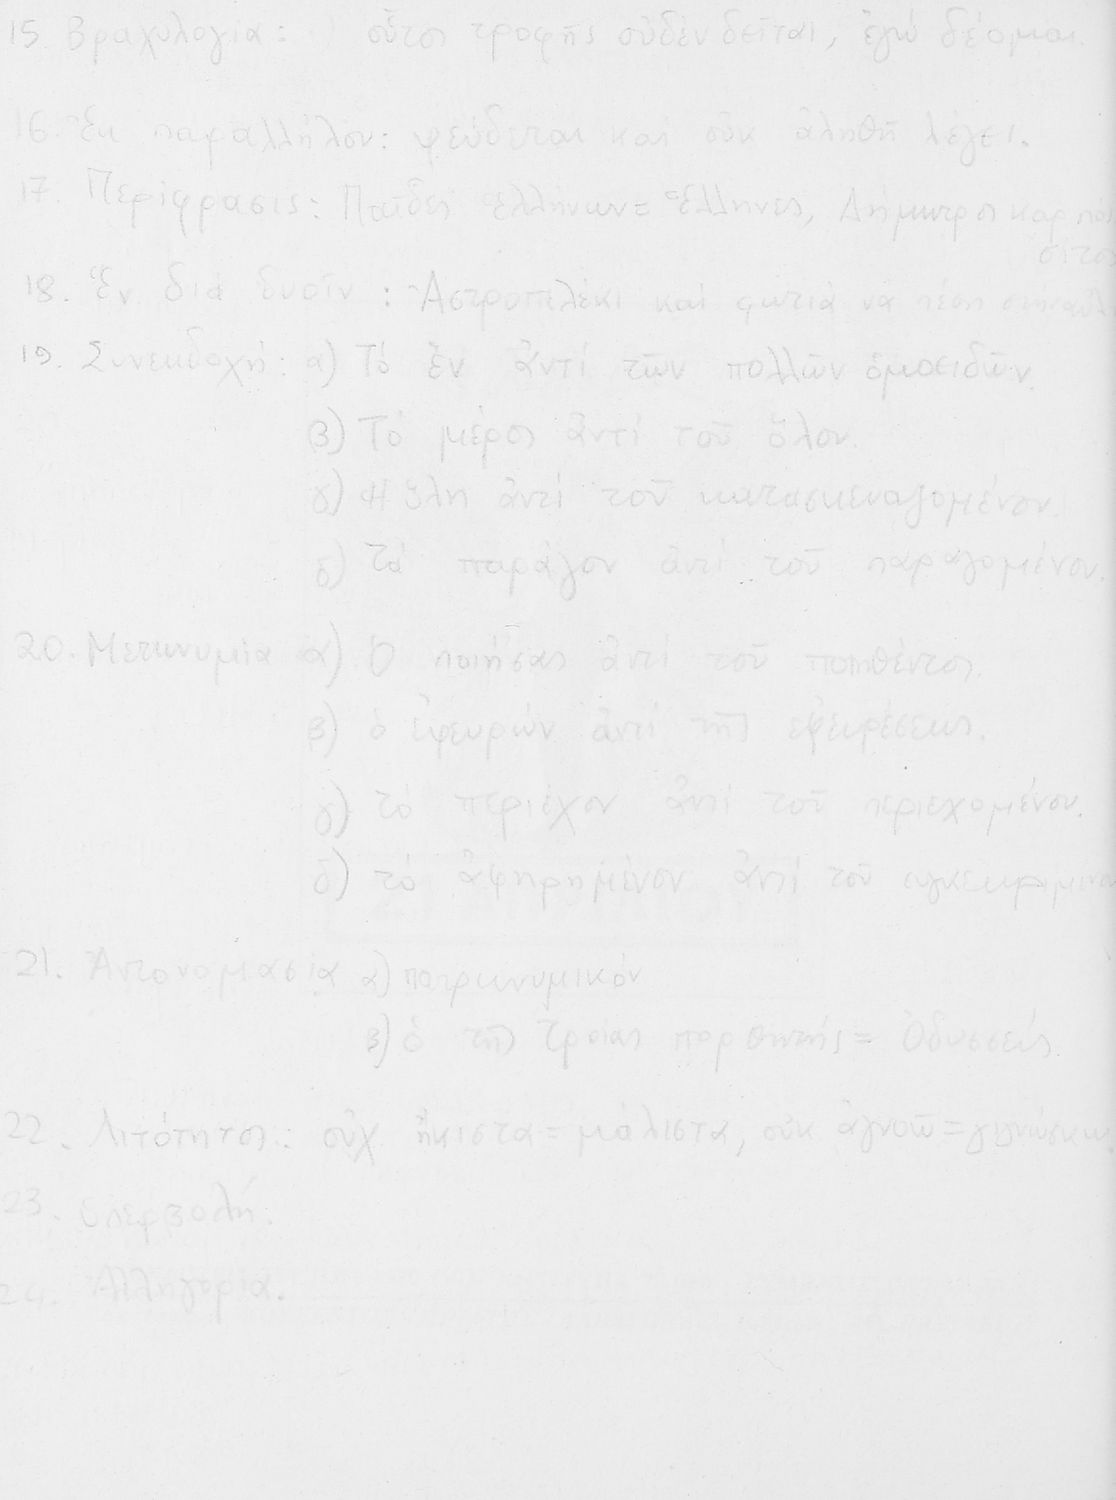 15. Βραχυλογία: οὗτος τροφῆς οὐδέν δεῖται, ἐγώ δέομαι.
16. Ἐκ παραλλήλου: ψεύδεται καί οὐκ ἀληθῆ λέγει.
17. Περίφρασις: Παῖδες Ἑλλήνων = Ἕλληνες, Δήμητρος καρπός
σῖτος
18. Ἕν διά δυοῖν: Ἀστροπελέκι καί φωτιά νά πέση
19. Συνεκδοχή: α) Τό ἕν ἀντί τῶν πολλῶν ὁμοειδῶν.
β) Τό μέρος ἀντί τοῦ ὅλου.
γ) Ἡ ὕλη ἀντί τοῦ κατασκευαζομένου.
δ) Τό παράγον ἀντί τοῦ παραγομένου.
20. Μετωνυμία α) Ὁ ποιήσας ἀντί τοῦ ποιηθέντος.
β) ὁ ἐφευρών ἀντί τῆς ἐφευρέσεως.
γ) τό περιέχον ἀντί τοῦ περιεχομένου.
δ) τό ἀφηρημένον ἀντί τοῦ συγκεκριμένου
21. Ἀντονομασία α) πατρωνυμικόν
β) ὁ τῆς Τροίας πορθητής = Ὀδυσσεύς.
22. Λιτότητος: οὐχ ἥκιστα = μάλιστα, οὐκ ἀγνοῶ = γιγνώσκω.
23. Ὑπερβολή.
24. Ἀλληγορία.